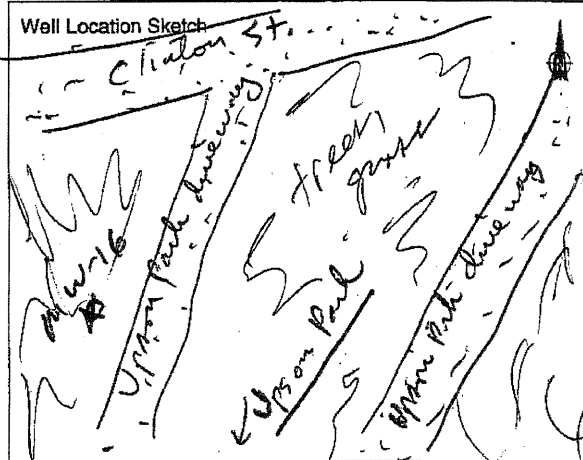 Well Location Sketch
Clinton St.
Upson Park driveway
trees,
grass
MW-16
Upson Park
Upson Park driveway